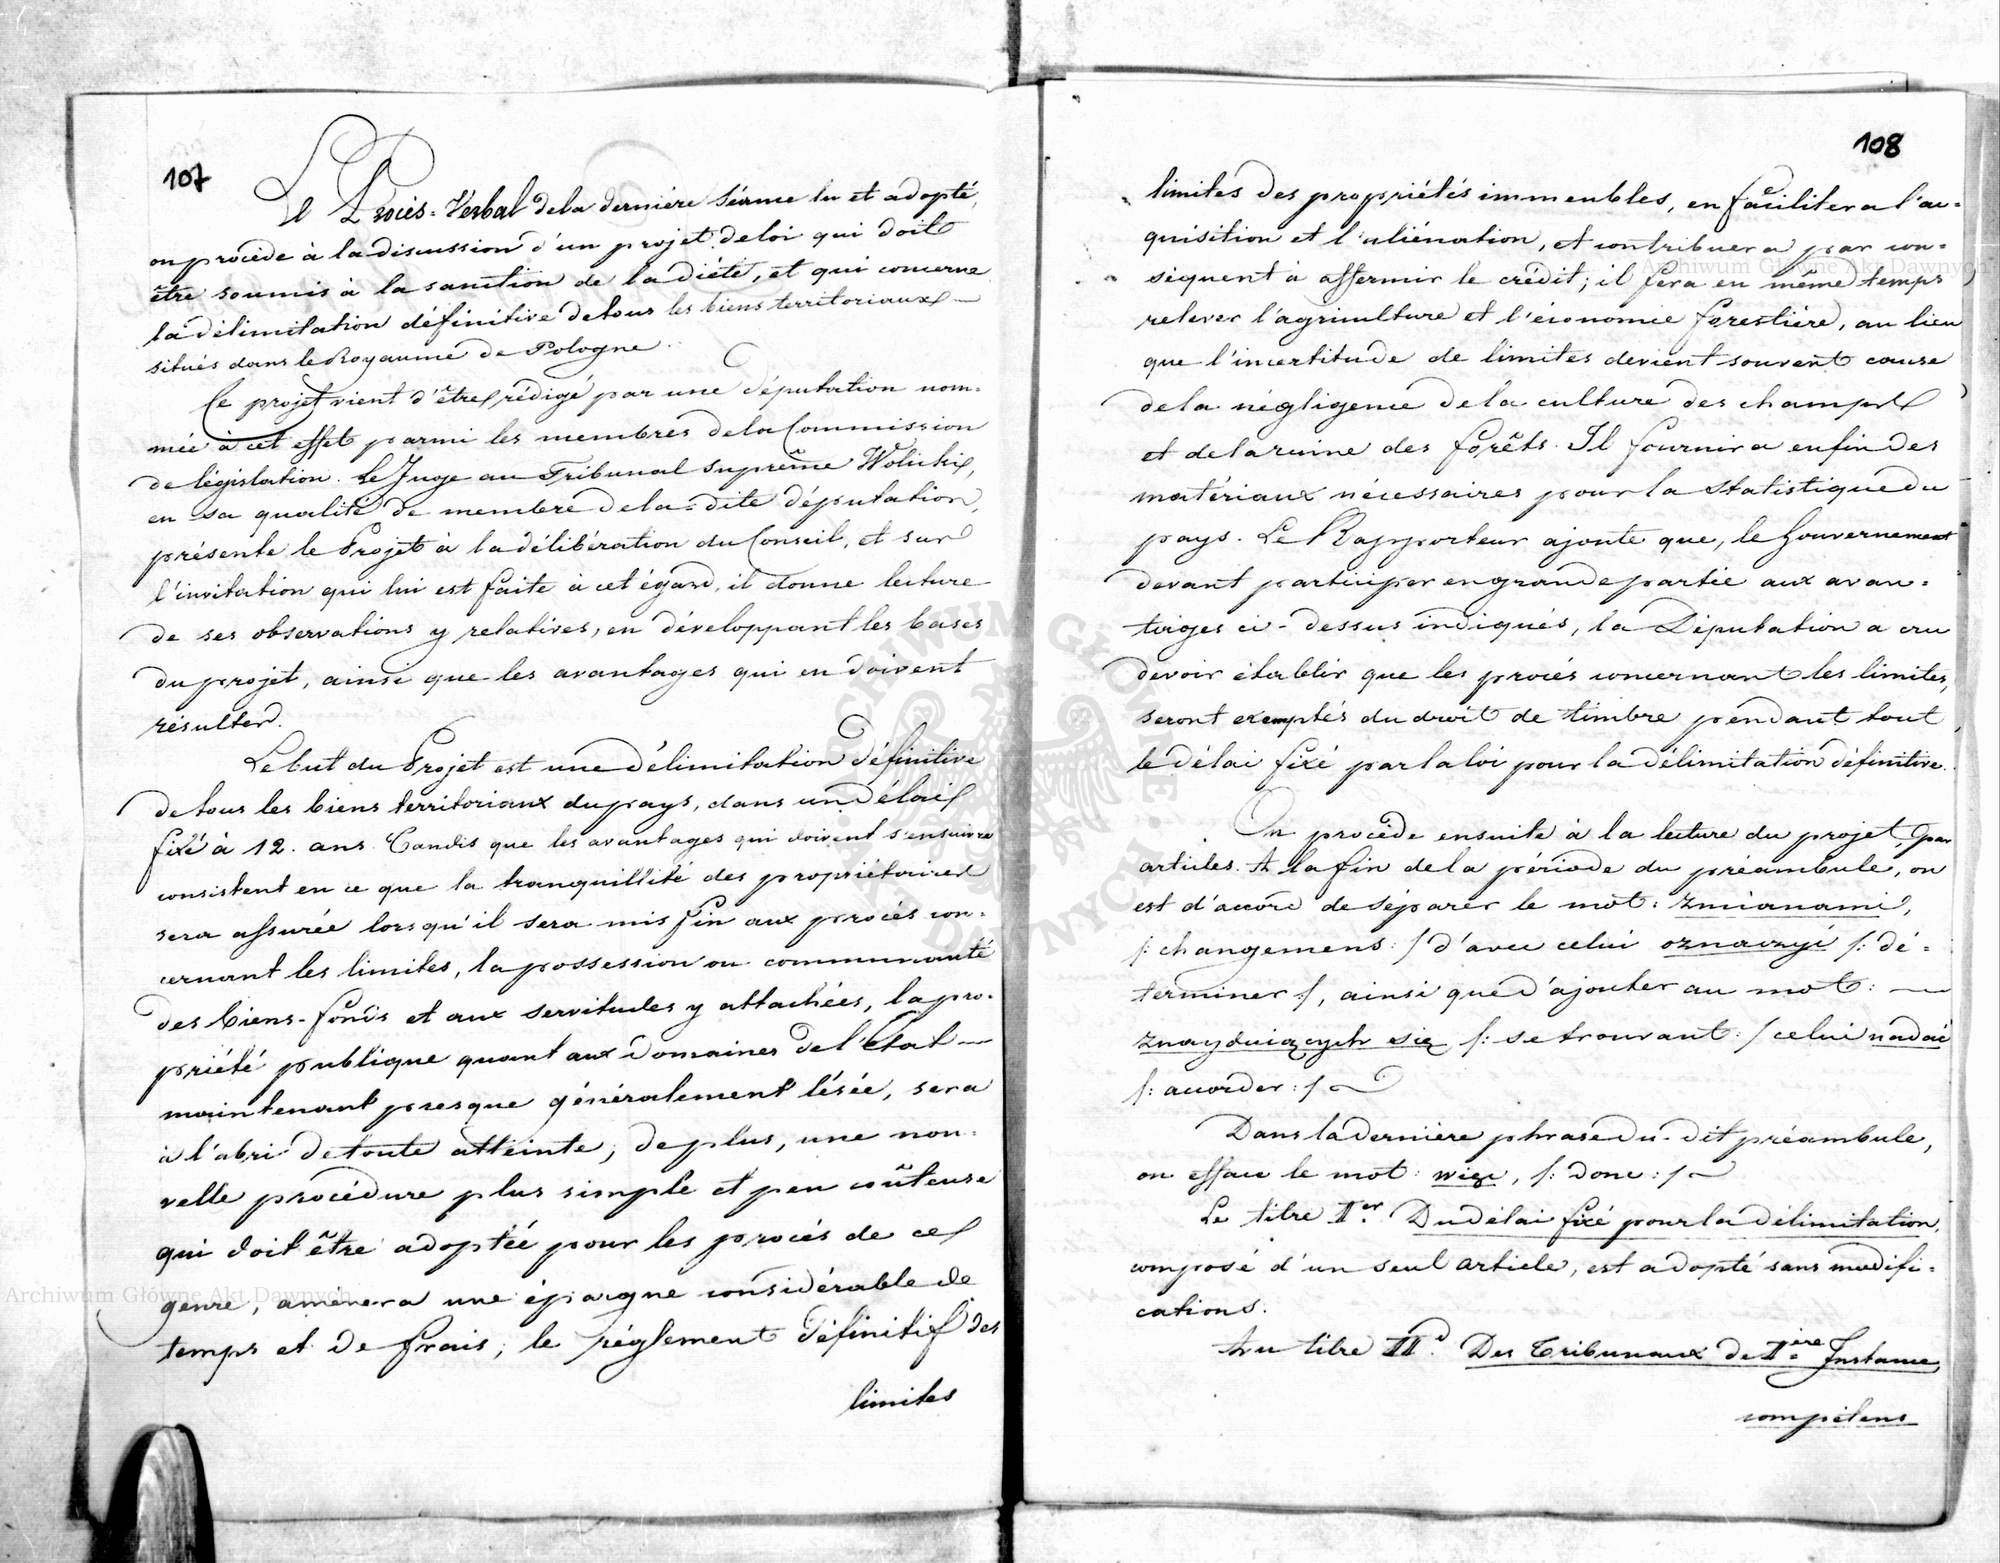 107
Le Procès-Verbal de la dernière séance lu et adopté,
on procède à la discussion d'un projet de loi qui doit
être soumis à la sanction de la diète, et qui concerne
la délimitation définitive de tous les biens territoriaux
situés dans le Royaume de Pologne.
Ce projet vient d'être rédigé par une députation nom=
mée à cet effet parmi les membres de la Commission
de législation. Le Juge au Tribunal Suprême Wolicki,
en sa qualité de membre de la-dite députation,
présente le Projet à la délibération du Conseil, et sur
l'invitation qui lui est faite à cet égard, il donne lecture
de ses observations y relatives, en développant les bases
du projet, ainsi que les avantages qui en doivent
résulter.
Le but du Projet est une délimitation définitive
de tous les biens territoriaux du pays, dans un délai
fixé à 12. ans. Tandis que les avantages qui doivent s'ensuivre
consistent en ce que la tranquillité des propriétaires
sera assurée lorsqu'il sera mis fin aux procès con=
cernant les limites, la possession ou communauté
des biens-fonds et aux servitudes y attachées, la pro=
priété publique quant aux domaines de l'état —
maintenant presque généralement lésée, sera
à l'abri de toute atteinte; de plus, une nou=
velle procédure plus simple et peu coûteuse
qui doit être adoptée pour les procès de ce
genre, amènera une épargne considérable de
temps et de frais; le réglement définitif des
limites
108
limites des propriétés immeubles, en facilitera l'ac=
quisition et l'aliénation, et contribuera par con=
séquent à affermir le crédit; il fera en même temps
relever l'agriculture et l'économie forestière, au lieu
que l'incertitude de limites devient souvent cause
de la négligence de la culture des champs
et de la ruine des forêts. Il fournira enfin des
matériaux nécessaires pour la statistique du
pays. Le Rapporteur ajoute que, le Gouvernement
devant participer en grande partie aux avan=
tages ci-dessus indiqués, la Députation a cru
devoir établir que les procès concernant les limites,
seront exemptés du droit de timbre pendant tout
le délai fixé par la loi pour la délimitation définitive.
On procède ensuite à la lecture du projet, par
articles. A la fin de la période du préambule, on
est d'accord de séparer le mot: zmianami,
/: changemens :/ d'avec celui oznaczyć /: dé=
terminer :/, ainsi que d'ajouter au mot: —
znayduiących się /: se trouvant :/ celui nadać
/: accorder :/
Dans la dernière phrase du-dit préambule,
on efface le mot: więc, /: donc :/
Le titre Ier. Du délai fixé pour la délimitation,
composé d'un seul article, est adopté sans modifi=
cations.
Au titre IId. Des Tribunaux de Ière Instance
compétens